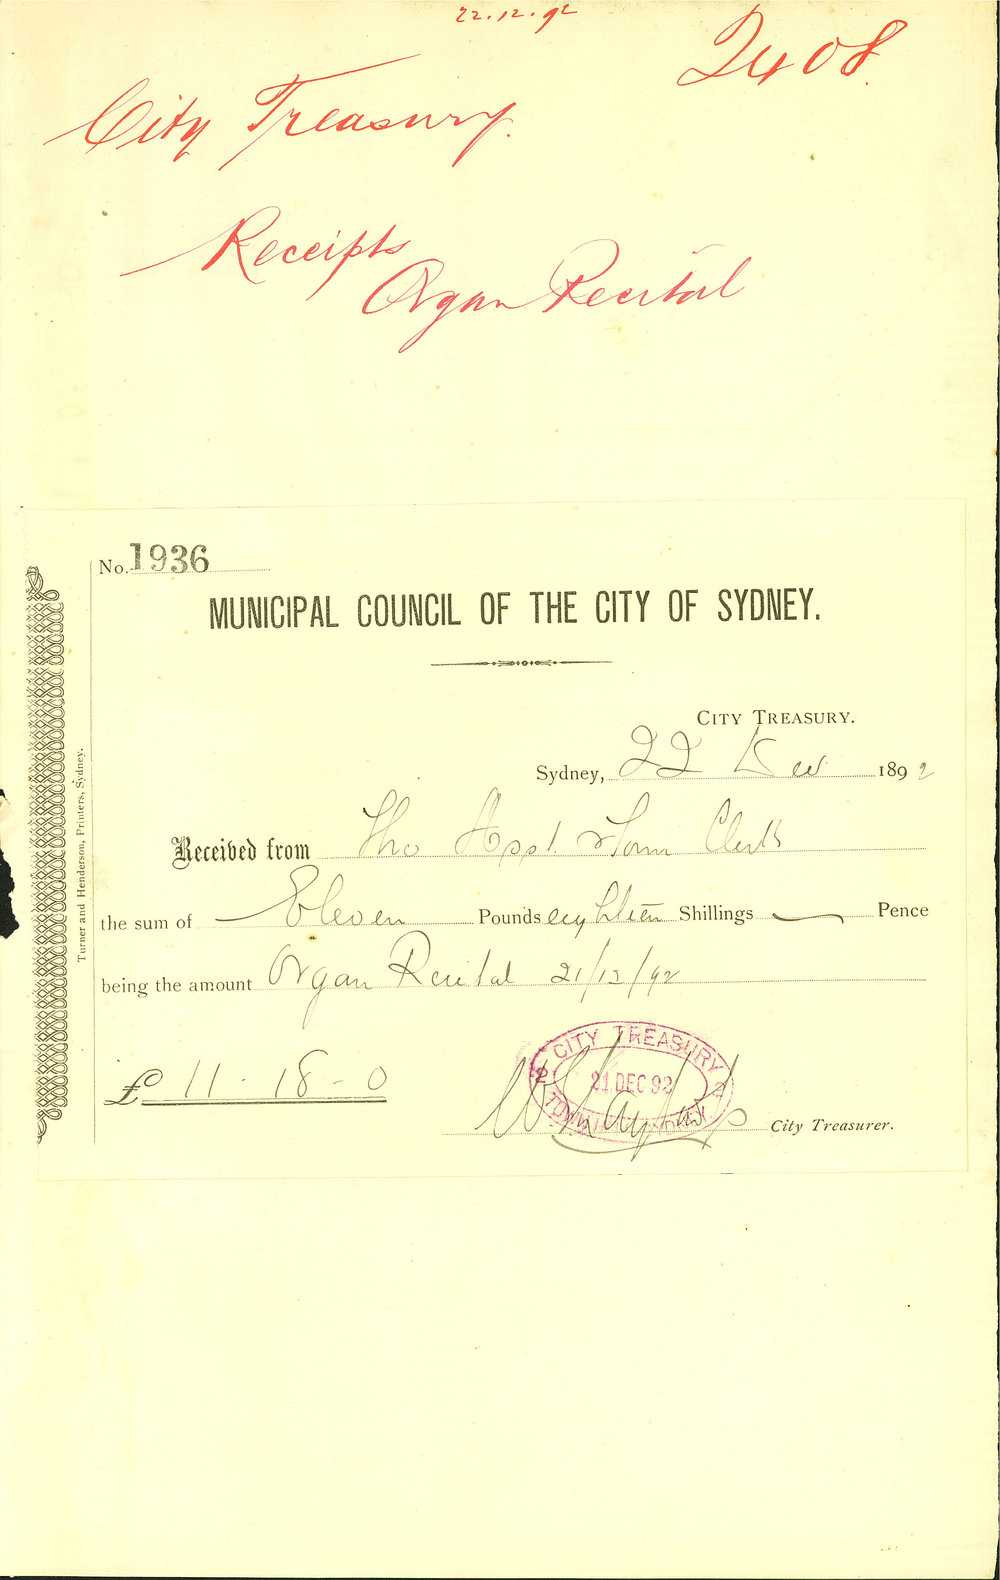 22.12.92
2408
City Treasury.
Receipts
Organ Recital
No. 1936
MUNICIPAL COUNCIL OF THE CITY OF SYDNEY.
CITY TREASURY.
Sydney, 22 Dec 1892
Received from The Asst. Town Clerk
the sum of Eleven Pounds eighteen Shillings — Pence
being the amount Organ Recital 21/12/92
£ 11 - 18 - 0
CITY TREASURY
21 DEC 92
TOWN HALL
City Treasurer.
Turner and Henderson, Printers, Sydney.